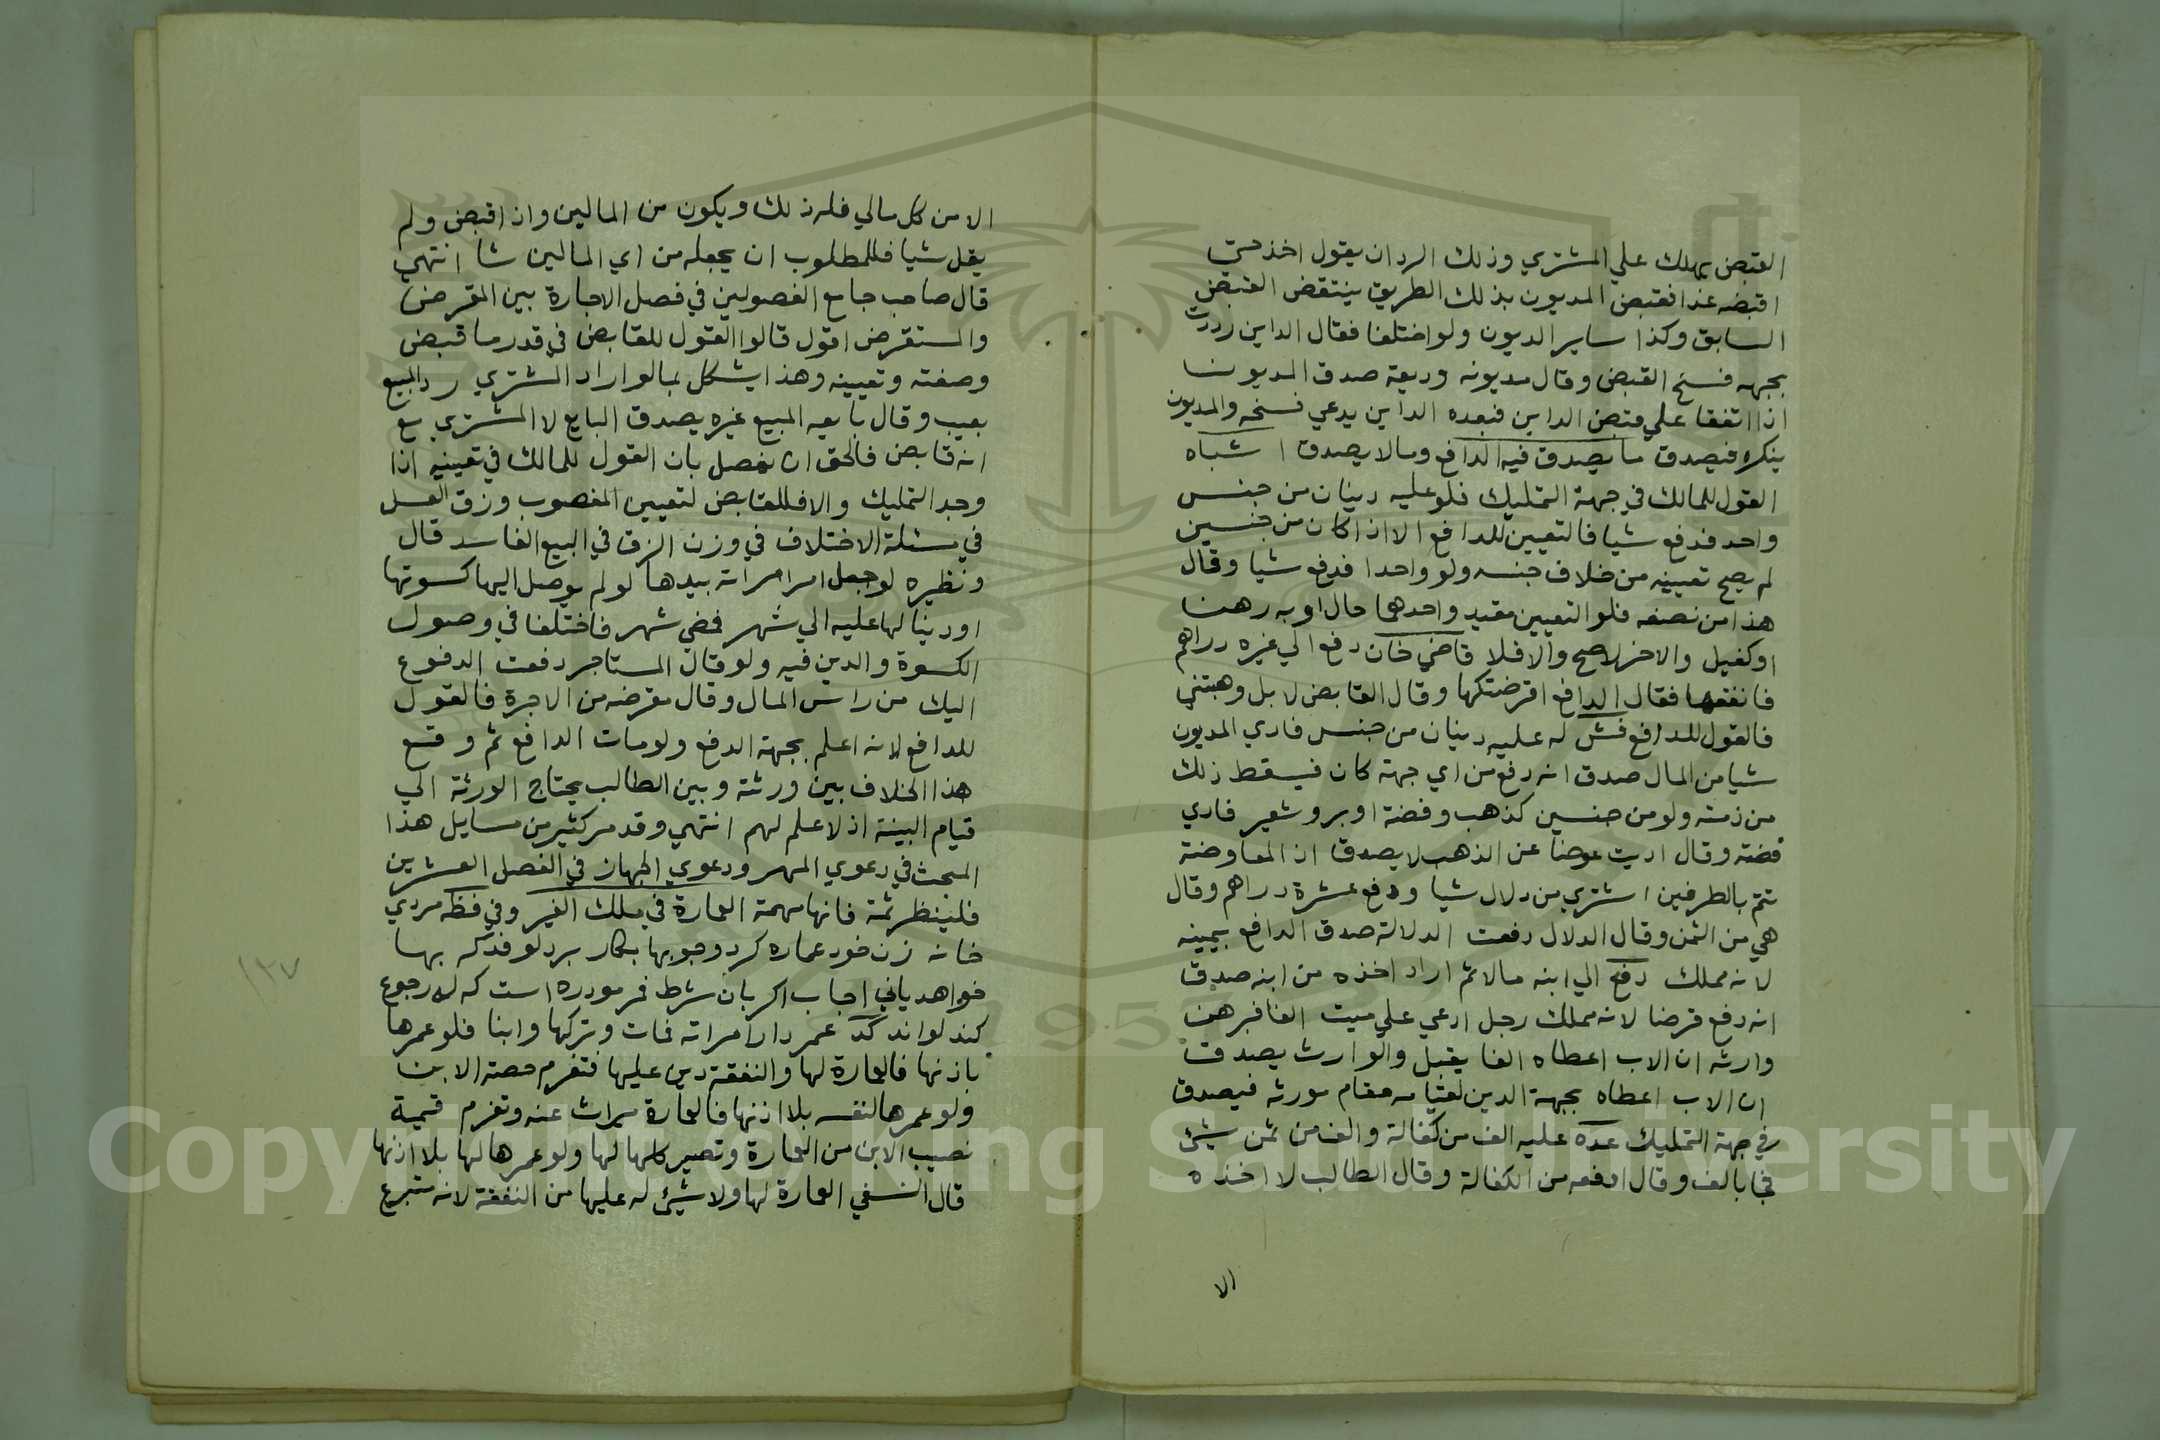 القبض يهلك علي المشتري وذلك الرد ان يقول اخذ حتي
اقبضه غدا فقبض المديون بذلك الطريق ينتقض القبض
السابق وكذا ساير الديون ولو اختلفا فقال الداين رددت
بجهه فسخ القبض وقال مديونه وديعة صدق المديون
اذا اتفقا علي قبض الداين فبعده الداين يدعي فسخه والمديون
ينكره فيصدق ما يصدق فيه الدافع وما لا يصدق اشباه
القول للمالك في جهة التمليك فلو عليه دينان من جنس
واحد فدفع شيا فالتعيين للدافع الا اذا كان من جنسين
لم يصح تعيينه من خلاف جنسه ولو واحدا فدفع شيا وقال
هذا من نصفه فلو التعيين مقيد واحدهما حال او به رهن
او كفيل والاخر لا صح والا فلا قاضي خان دفع الي غيره دراهم
فانفقها فقال الدافع اقرضتكها وقال القابض لا بل وهبتني
فالقول للدافع فش له عليه دينان من جنس فادي المديون
شيا من المال صدق انه دفع من اي جهة كان فيسقط ذلك
من ذمته ولو من جنسين كذهب وفضة او بر وشعير فادي
فضة وقال اديت عوضا عن الذهب لا يصدق اذ المعاوضة
تتم بالطرفين اشتري من دلال شيا ودفع عشرة دراهم وقال
هي من الثمن وقال الدلال دفعت الدلالة صدق الدافع بيمينه
لانه مملك دفع الي ابنه مالا ثم اراد اخذه من ابنه صدق
انه دفع قرضا لانه مملك رجل ادعي علي ميت الفا فبرهن
وارثه ان الاب اعطاه الفا يقبل والوارث يصدق
ان الاب اعطاه بجهة الدين لقيامه مقام مورثه فيصدق
في جهة التمليك عده عليه الف من كفالة والف من ثمن شيئ
فجا بالف وقال ادفعه من الكفالة وقال الطالب لا اخذه
الا
الا من كل مالي فله ذلك ويكون من المالين واذا قبض ولم
يقل شيا فللمطلوب ان يجعله من اي المالين شا انتهي
قال صاحب جامع الفصولين في فصل الاجارة بين المقرض
والمستقرض اقول قالوا القول للقابض في قدر ما قبض
وصفته وتعيينه وهذا يشكل بما لو اراد المشتري رد المبيع
بعيب وقال بايعه المبيع غيره يصدق البايع لا المشتري مع
انه قابض فالحق ان يفصل بان القول للمالك في تعيينه اذا
وجد التمليك والا فللقابض لتعيين المغصوب وزق العسل
في مسئلة الاختلاف في وزن الزق في البيع الفاسد قال
ونظيره لو جعل امر امراته بيدها لو لم يوصل اليها كسوتها
او دينا لها عليه الي شهر فمضي شهر فاختلفا في وصول
الكسوة والدين فيه ولو قال المستاجر دفعت المدفوع
اليك من راس المال وقال مقرضه من الاجرة فالقول
للدافع لانه اعلم بجهة الدفع ولو مات الدافع ثم وقع
هذا الخلاف بين ورثته وبين الطالب يحتاج الورثة الي
قيام البينة اذ لا علم لهم انتهي وقد مر كثير من مسايل هذا
المبحث في دعوي المهر ودعوي الجهاز في الفصل العشرين
فلينظر ثمة فانها مهمة العمارة في ملك الغير وفي فظه مردي
خانه زن خود عماره كرد وجوبها بكار برد لو فدكه بها
خواهد يا ني اجاب اكر بان شرط فرموده است كه له رجوع
كند لواند كد عمر دار امراته فمات وتركها وابنا فلو عمرها
باذنها فالعمارة لها والنفقة دين عليها فتغرم حصة الابن
ولو عمرها لنفسه بلا اذنها فالعمارة ميراث عنه وتغرم قيمة
نصيب الابن من العمارة وتصير كلها لها ولو عمرها لها بلا اذنها
قال النسفي العمارة لها ولا شيئ له عليها من النفقة لانه متبرع
١٣٧
Copyright © King Saud University
1957